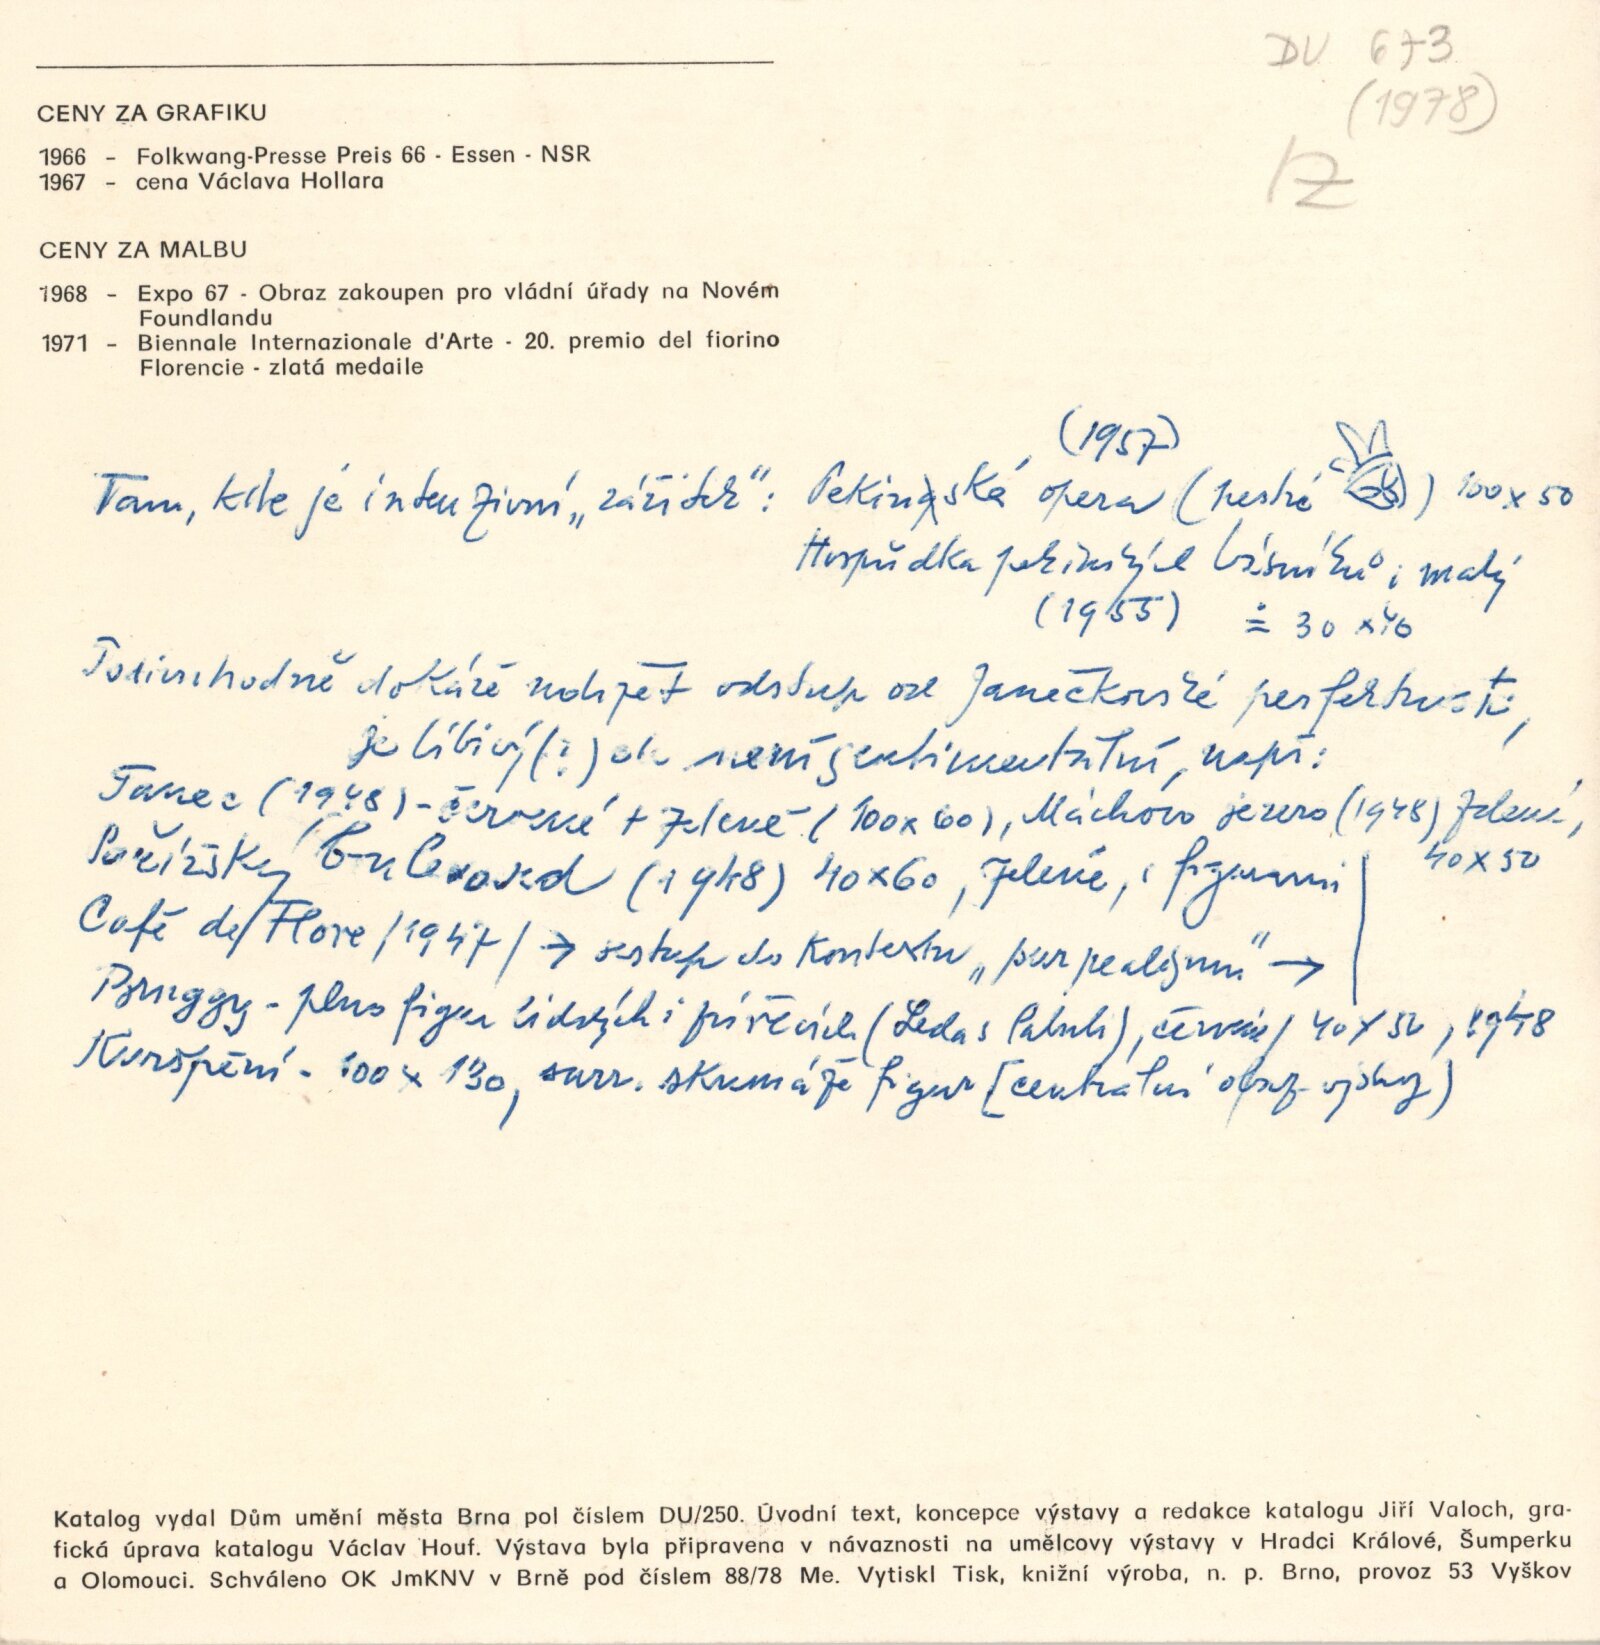 DU 673
(1978)
CENY ZA GRAFIKU
1966 – Folkwang-Presse Preis 66 - Essen - NSR
1967 – cena Václava Hollara
CENY ZA MALBU
1968 – Expo 67 - Obraz zakoupen pro vládní úřady na Novém
Foundlandu
1971 – Biennale Internazionale d'Arte - 20. premio del fiorino
Florencie - zlatá medaile
(1957)
Tam, kde je intenzivní „zážitek“: Pekingská opera (pestré ) 100 x 50
Hospůdka pekinských básníků i malý
(1955) ≐ 30 x 40
dokáže odstup od Janečkovské perfektnosti,
je líbivý (?) ale není sentimentální, např:
Tanec (1948) - červené + zelené (100 x 60), Máchovo jezero (1948) zelené,
40 x 50
Pařížský bulevard (1948) 40 x 60, zelené, i figurami
Café de Flore /1947/ → sestup do kontextu „surrealismu“ →
Bruggy - plno figur lidských i (Leda s labutí), červené / 40 x 50, 1948
100 x 130, surr. skrumáže figur [centrální obraz výstavy)
Katalog vydal Dům umění města Brna pol číslem DU/250. Úvodní text, koncepce výstavy a redakce katalogu Jiří Valoch, gra-
fická úprava katalogu Václav Houf. Výstava byla připravena v návaznosti na umělcovy výstavy v Hradci Králové, Šumperku
a Olomouci. Schváleno OK JmKNV v Brně pod číslem 88/78 Me. Vytiskl Tisk, knižní výroba, n. p. Brno, provoz 53 Vyškov